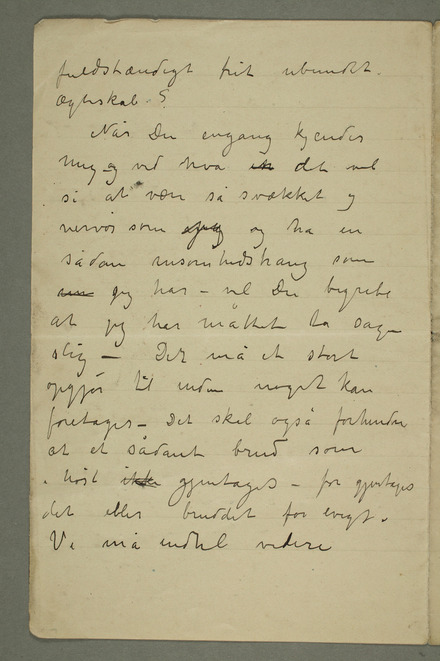 fuldstændigt frit ubundet.
Ægteskab.?
Når Du engang kjender
mig og ved hva det vil
si at være så svækket og
nervøs som jeg og ha en
sådan ensomhedstrang som
jeg har – vil Du begribe
at jeg har måttet ta sagen
slig – Det må et stort
opgjør til inden noget kan
foretages – Det skal også forhindre
at et sådant brud som
i høst ikke gjentages – for gjentages
det eller bruddet for evigt.
Vi må indtil videre